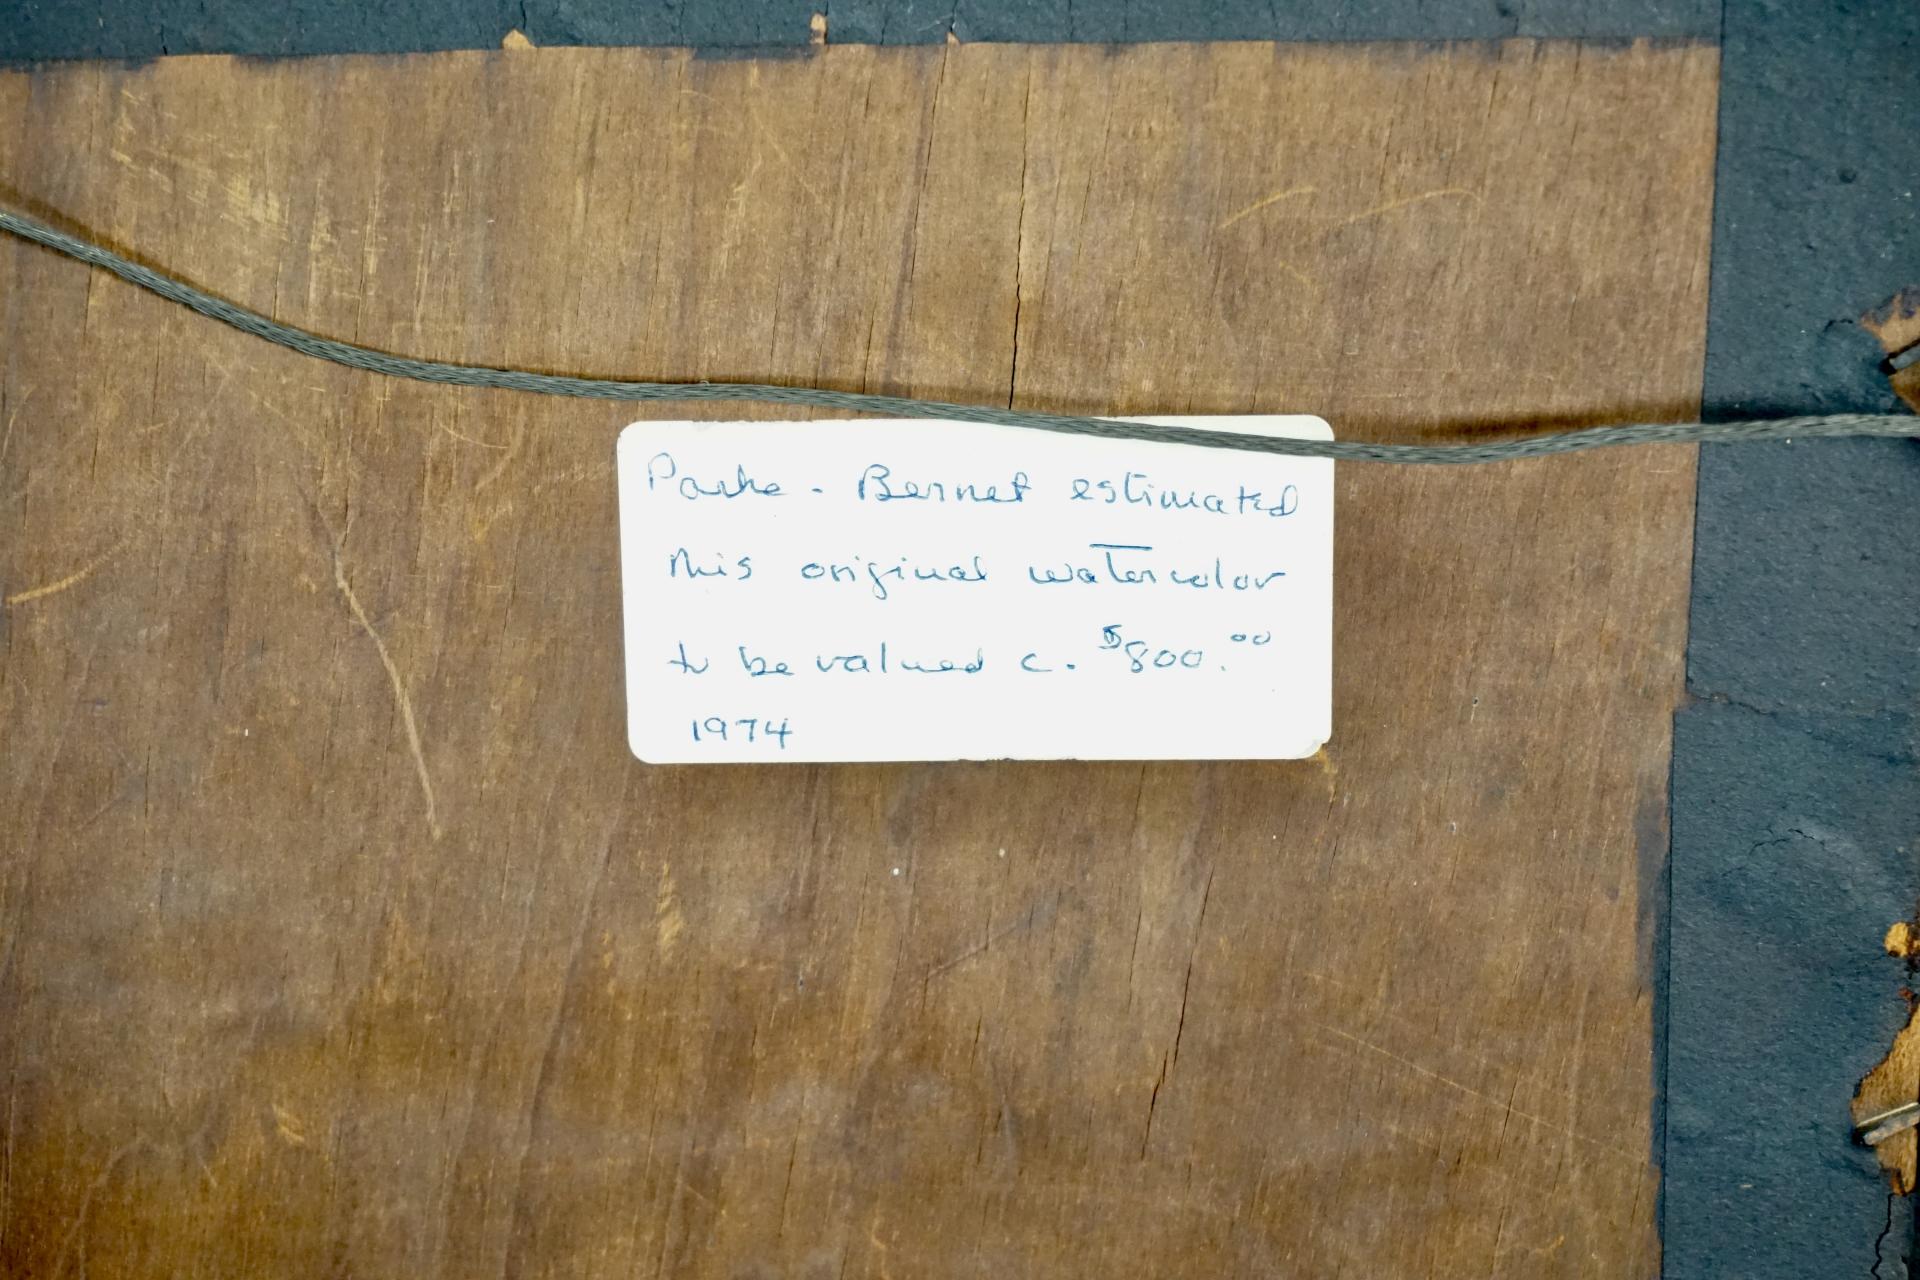 Parke-Bernet estimated
this original watercolor
to be valued c. $800.00
1974